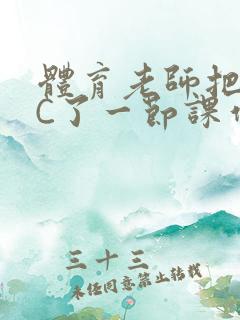 體育老師把
C了一節課作
三十三
未经同意禁止转载